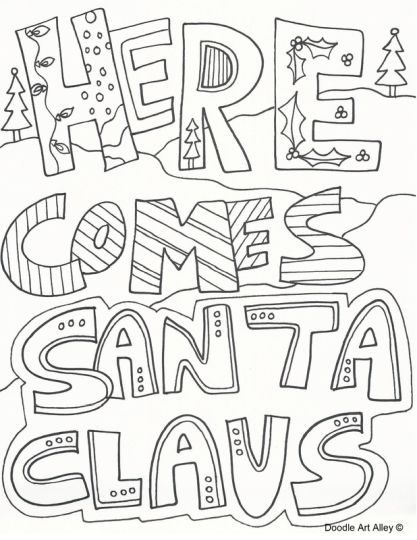 HERE
COMES
SANTA
CLAUS
Doodle Art Alley ©